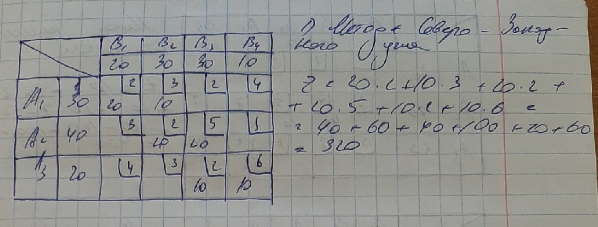 B₁ B₂ B₃ B₄
20 30 30 10
A₁ 30 2 3 2 4
20 10
A₂ 40 3 2 5 1
20 20
A₃ 20 4 3 2 6
10 10
1) Метод Северо-Запад-
ного угла
Z = 20·2+10·3+20·2+
+20·5+10·2+10·6 =
= 40+60+40+100+20+60
= 320